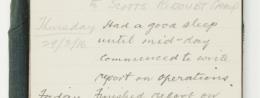 to SCOTTS REDOUBT Camp
Thursday Had a good sleep
29/2/16 until mid-day
commenced to write
report on operations
Friday Finished report on